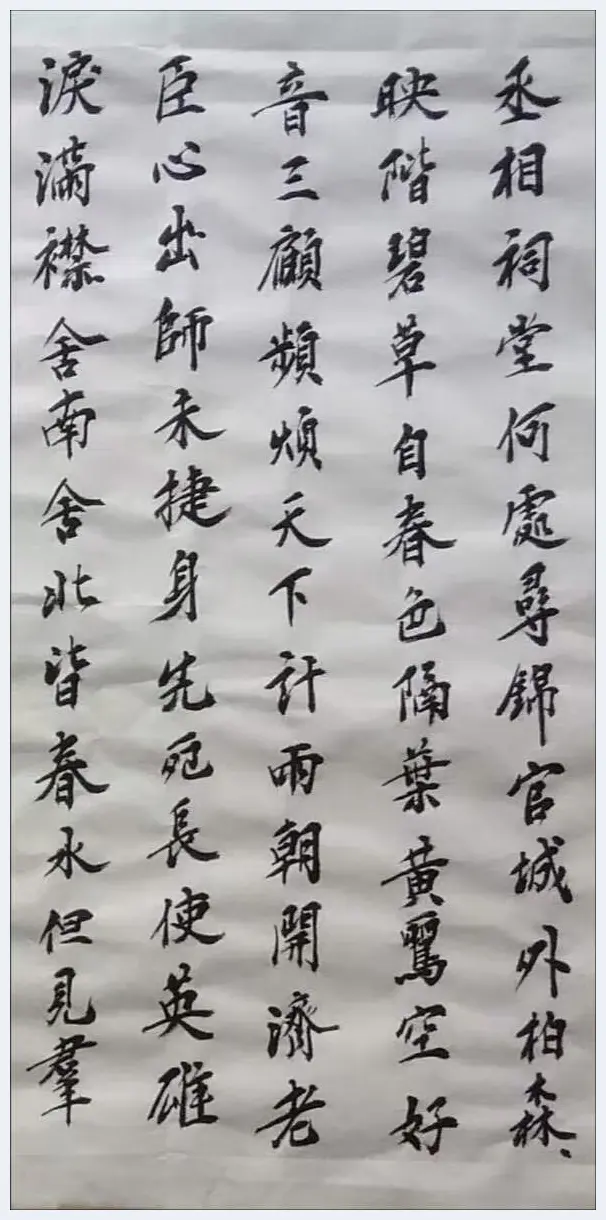 丞相祠堂何處尋錦官城外柏森、
映階碧草自春色隔葉黃鸎空好
音三顧頻煩天下計兩朝開濟老
臣心出師未捷身先死長使英雄
淚滿襟舍南舍北皆春水但見羣